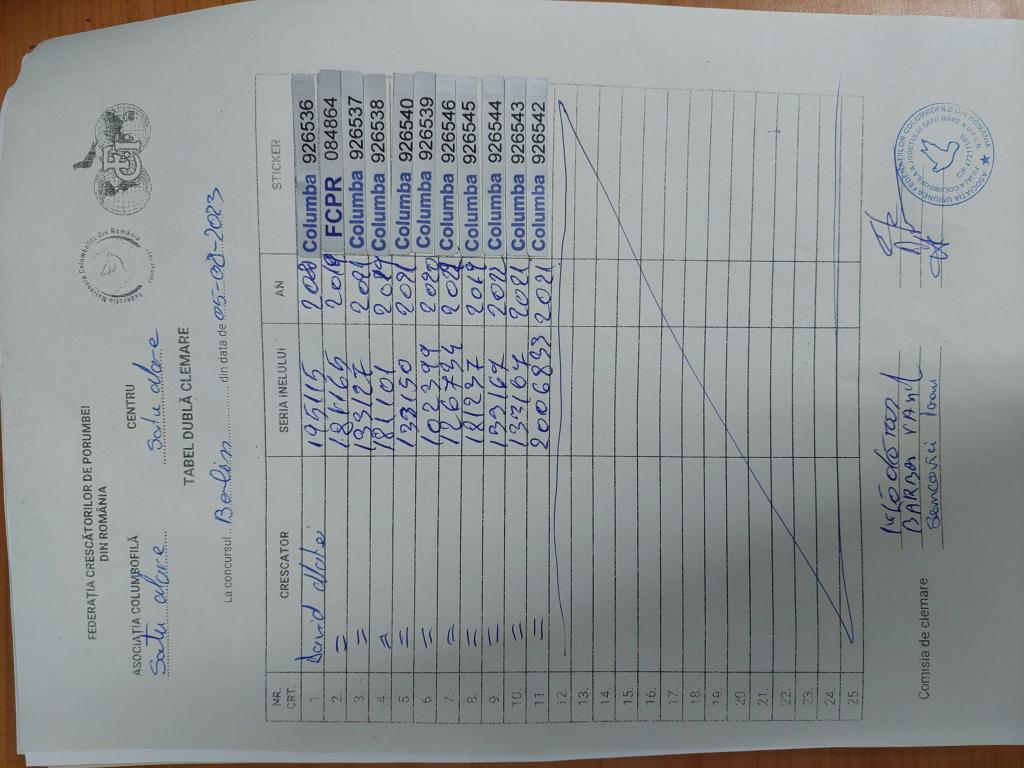 FEDERAȚIA CRESCĂTORILOR DE PORUMBEI
DIN ROMÂNIA
Federația Națională Columbofilă din România
ASOCIAȚIA COLUMBOFILĂ CENTRU
Satu Mare Satu Mare
TABEL DUBLĂ CLEMARE
La concursul Berlin din data de 05-08-2023
NR. CRT. CRESCATOR SERIA INELULUI AN STICKER
1. David Matei 195115 Columba 926536
2. = 2019 FCPR 084864
3. = 133127 2021 Columba 926537
4. = 181101 Columba 926538
5 = 133150 2021 Columba 926540
6. = 102399 2020 Columba 926539
7. = 126734 Columba 926546
8. = 181237 2019 Columba 926545
9. = 133167 Columba 926544
10. = 133164 2021 Columba 926543
11. = 2006833 2021 Columba 926542
12.
13.
14.
15.
16.
17.
18.
19.
20.
21.
22.
23.
24.
25.
Comisia de clemare
BARBA
Ioan